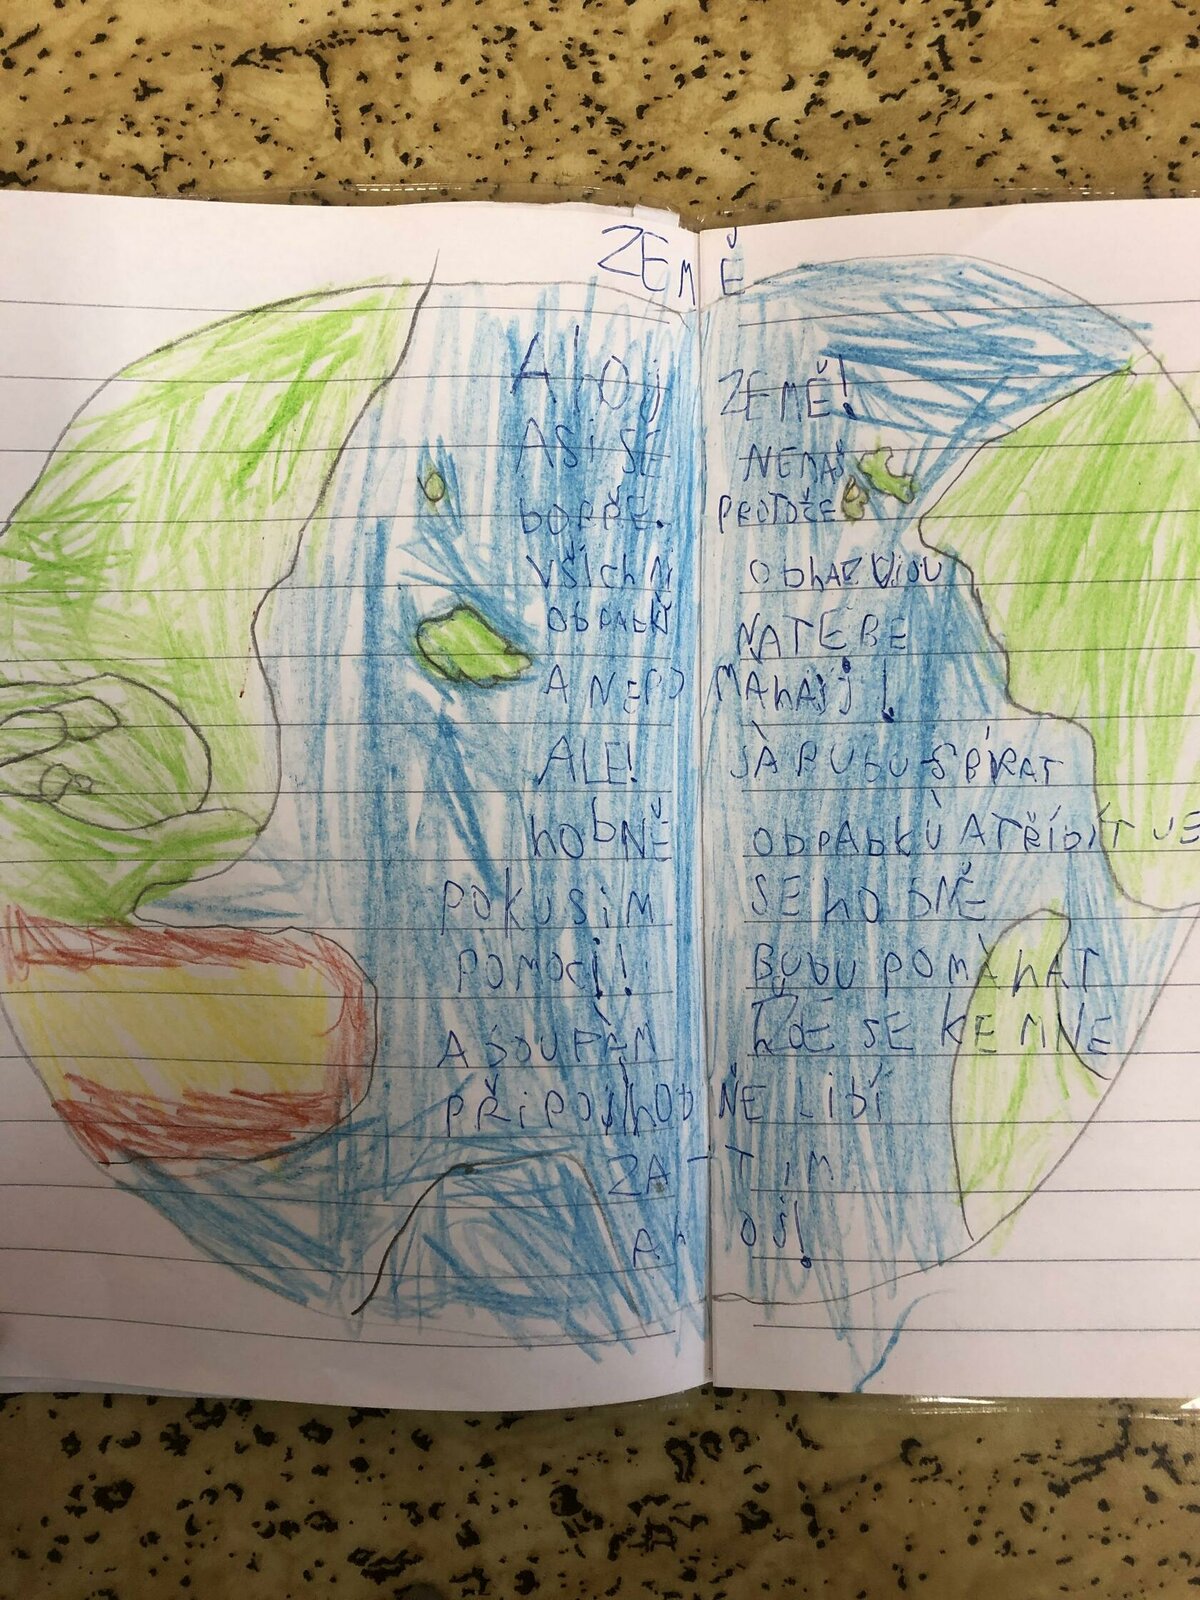 ZEMĚ
Ahoj ZEMĚ!
ASi SE NEMAŠ
DOBŘE. PROTOŽE
VŠICHNi ObhAZUjOU
ObPAdKY NATĚBE
A NEPOMAhAjÍ!
ALE! JÁ BUDU SBÍRAT
hObNĚ ObPAbKŮ A TŘÍDiT JE
POKUSiM SE hObNĚ
POMOCi! BUDU POMÁHAT
A DOUFÁM ŽDE SE KE MNE
PŘiPOJÍ hODŇE LIDÍ
ZATIM
AhOj!